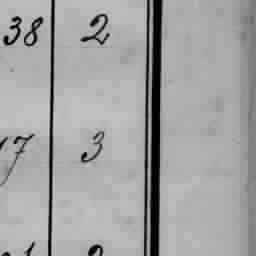 38 2
17 3